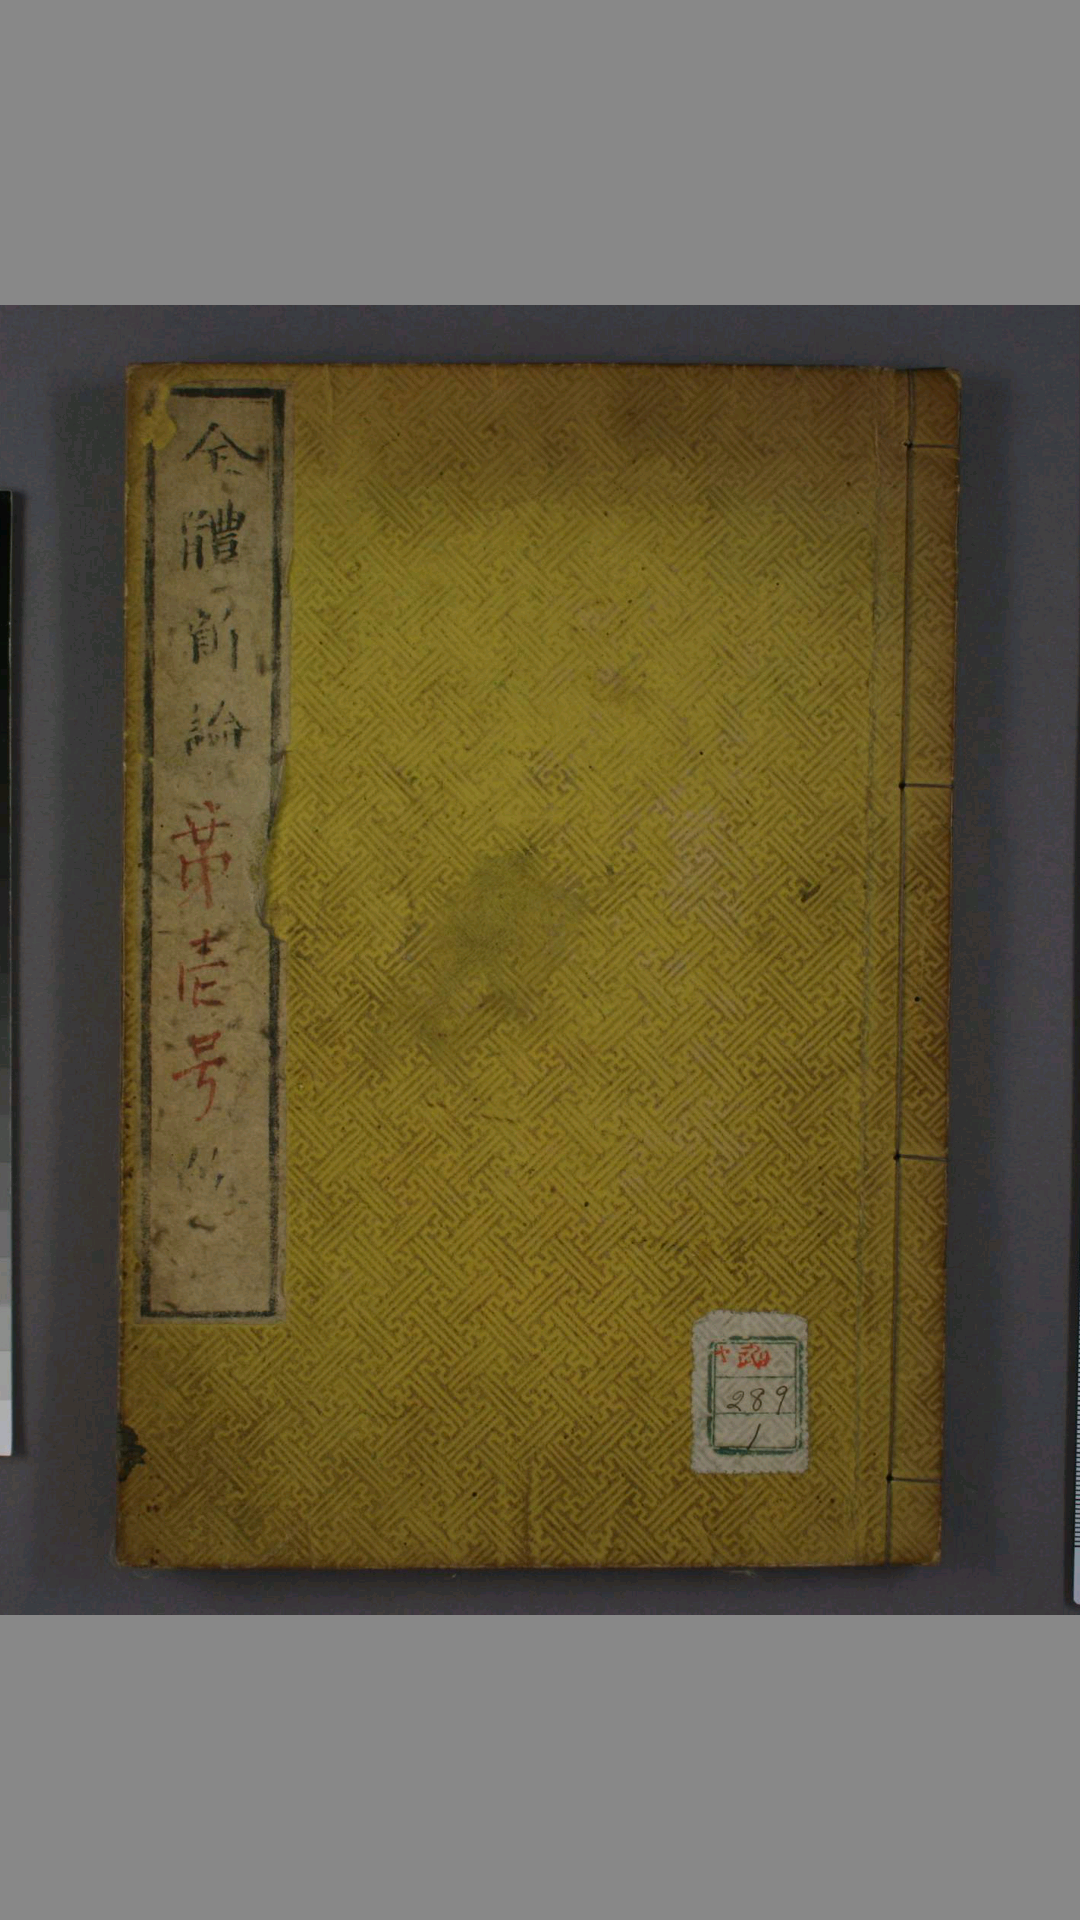 全體新論第壹号
289
1